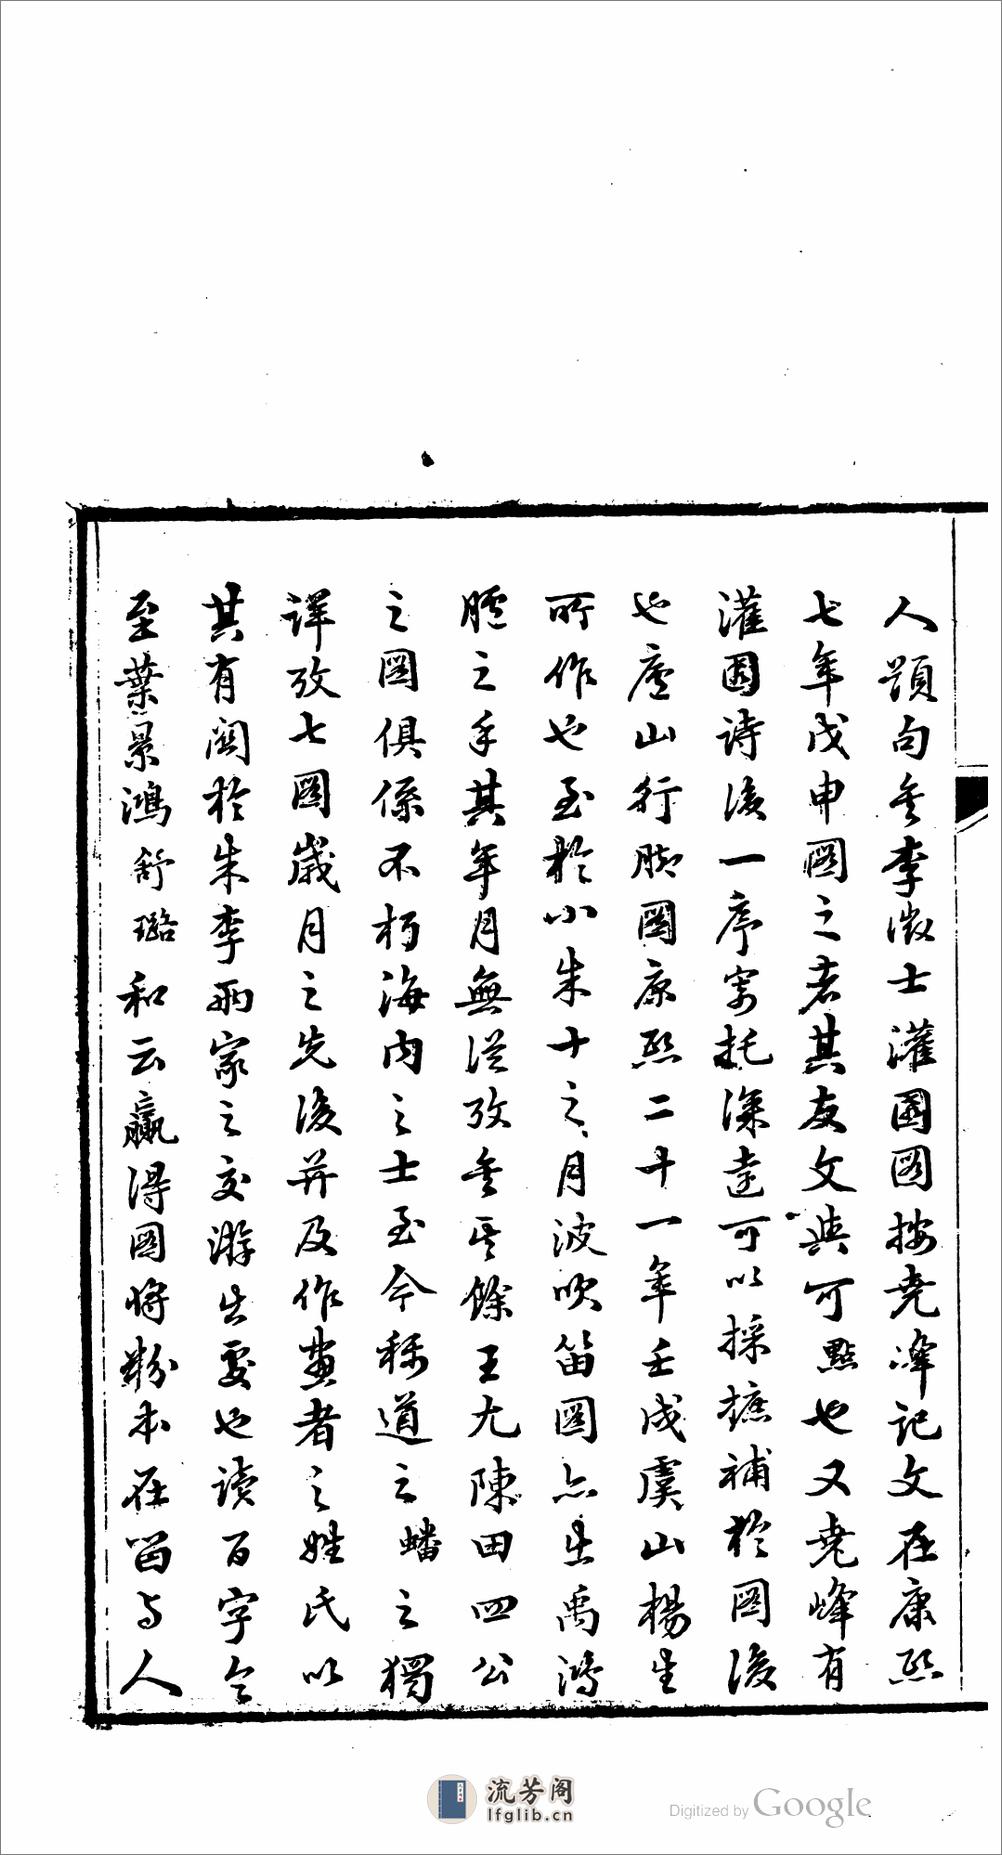 人題句矣李徵士灌園圖按堯峰記文在康熙
七年戊申圖之者其友文與可點也又堯峰有
灌園詩後一序寄托深遠可以採摭補於圖後
也廬山行腳圖康熙二十一年壬戌虞山楊生
所作也至於小朱十之月波吹笛圖亦出禹鴻
臚之手其年月無從攷矣其餘王尤陳田四公
之圖俱係不朽海內之士至今稱道之蟠之獨
詳攷七圖歲月之先後并及作畫者之姓氏以
其有關於朱李兩家之交游出處也讀百字令
至葉景鴻舒璐和云贏得圖將粉本在留与人
流芳阁
lfglib.cn
Digitized by Google